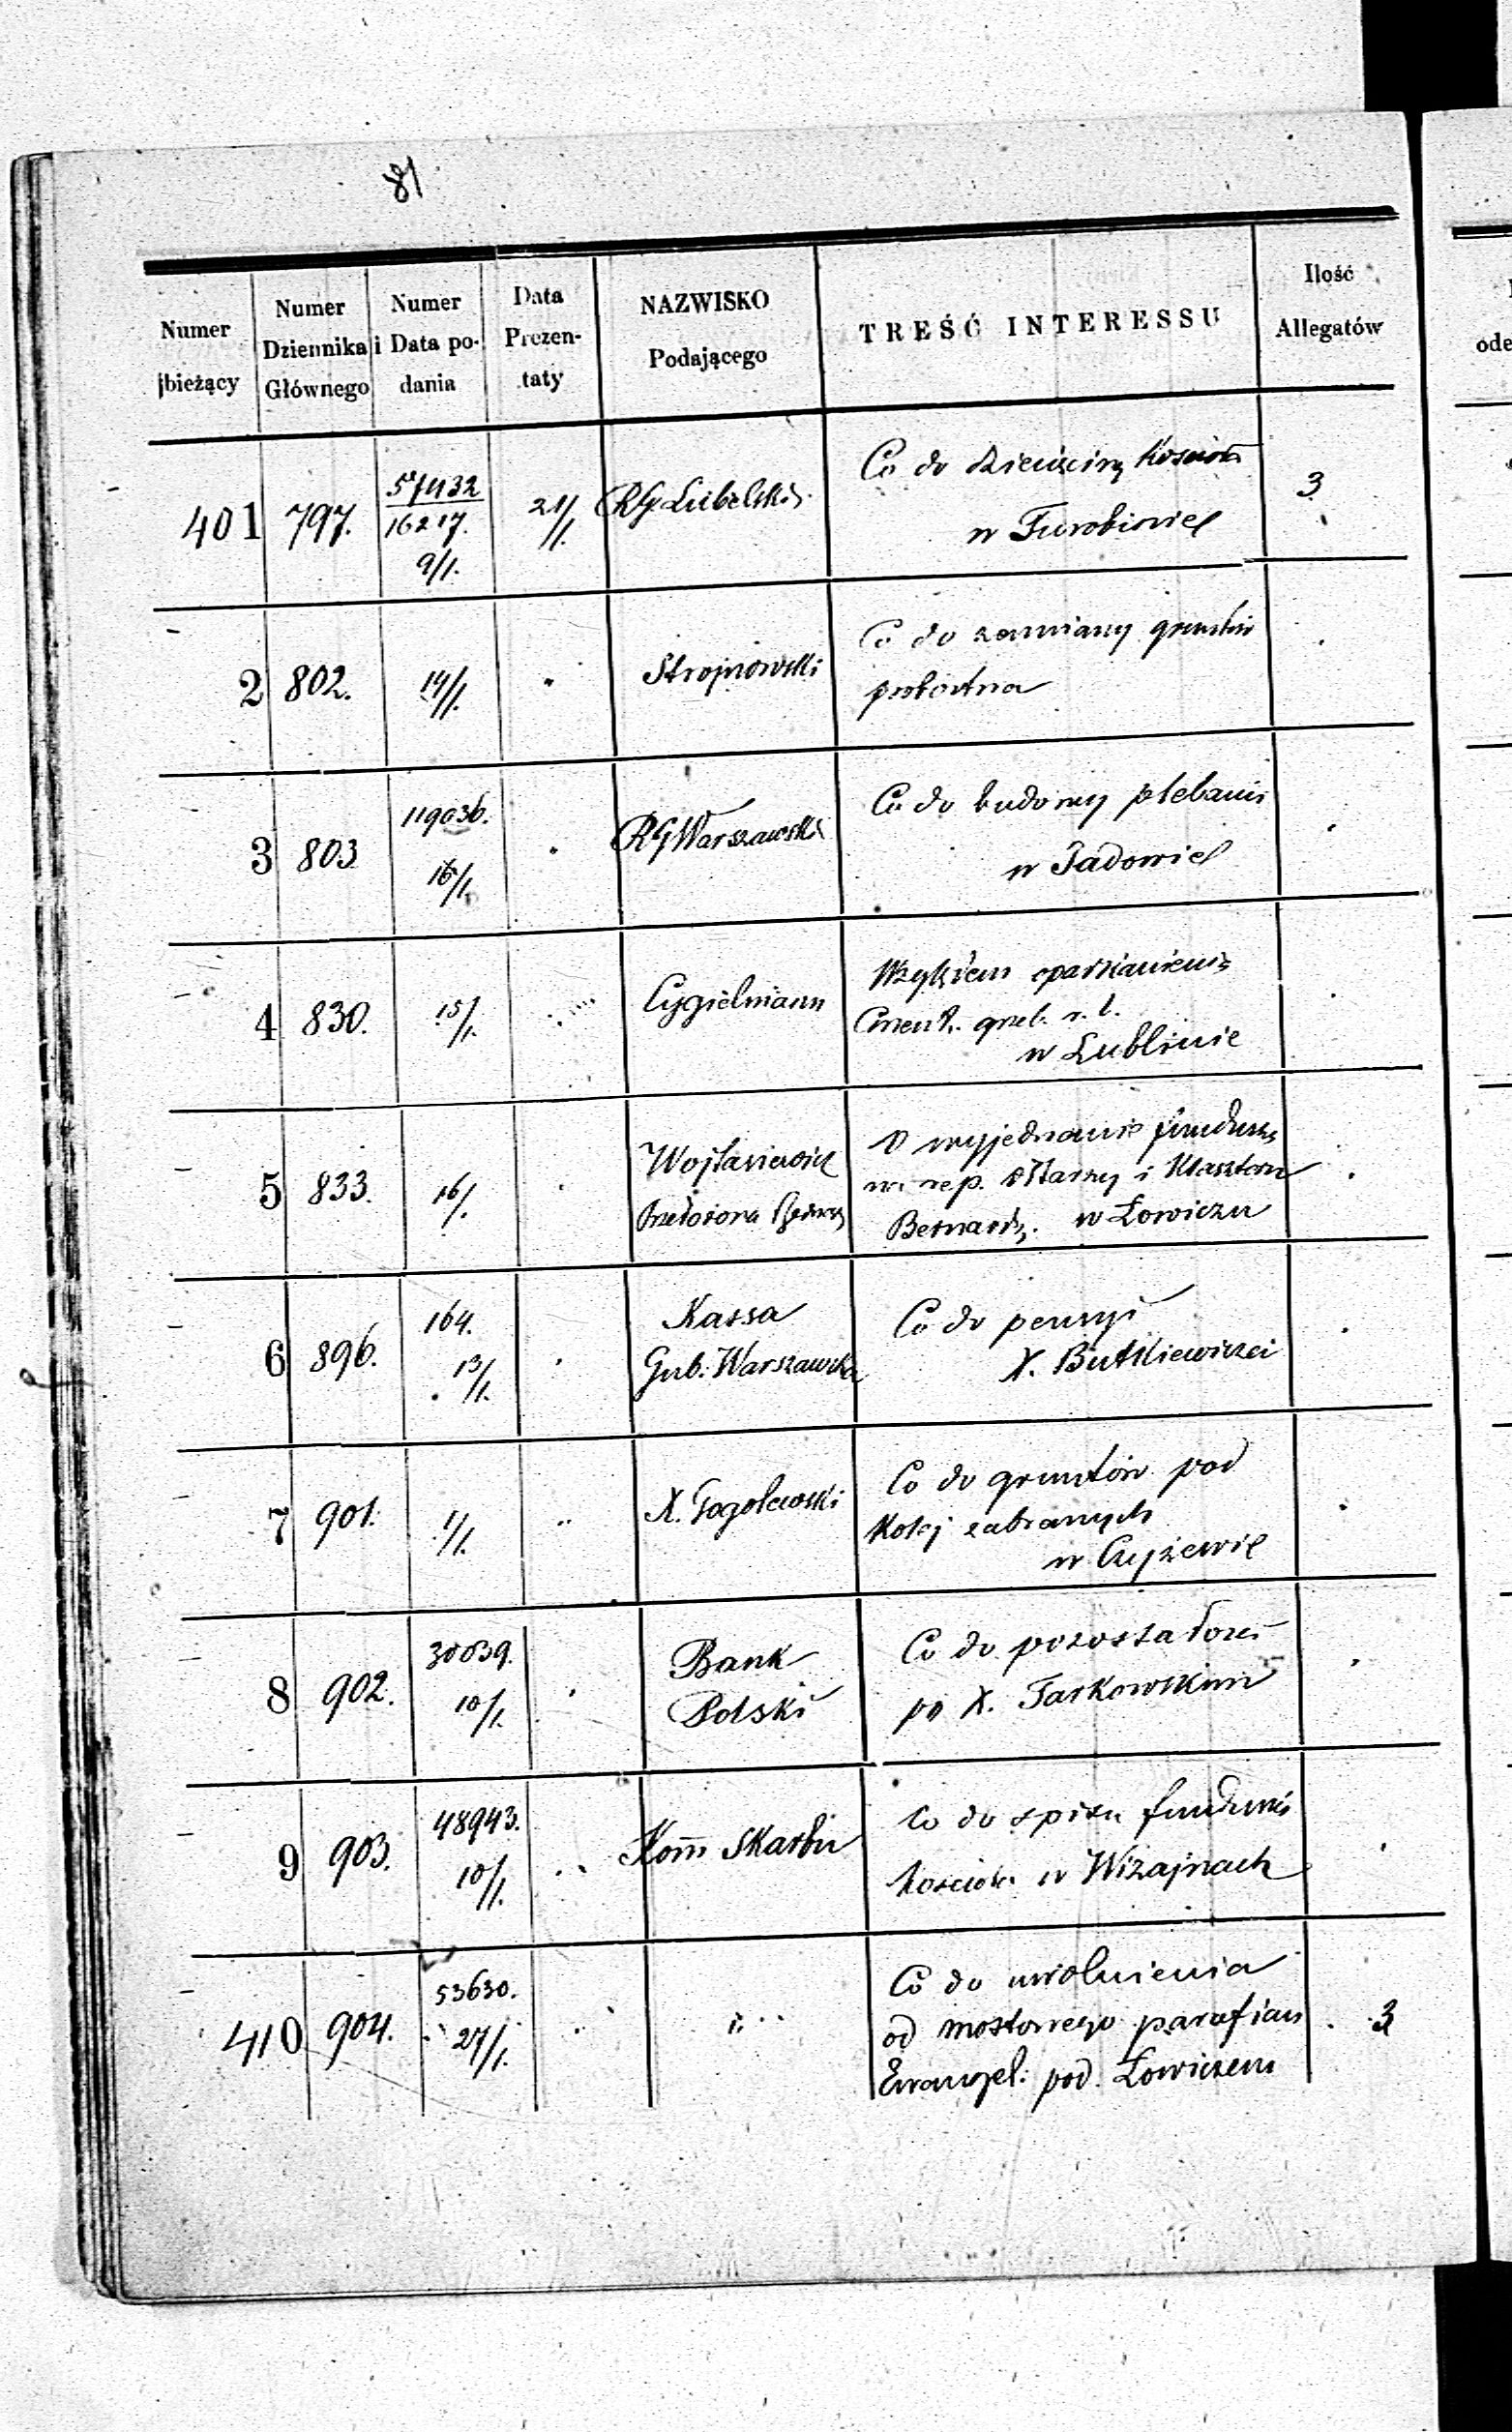 81
Numer bieżący
Numer Dziennika Głównego
Numer i Data podania
Data Prezentaty
NAZWISKO Podającego
TREŚĆ INTERESSU
Ilość Allegatów
401 797. 57432 / 16217. 9/1. 21/1. RG Lubelski
Co do dziesięciny Kościoła
w Turobinie
3
2 802. 14/1. Strojnowski
Co do zamiany gruntów
probostwa
3 803 119036. 16/1. RG Warszawski
Co do budowy plebanii
w Jadowie
4 830. 15/1. Cygielmann
Względem oparkanienia
Cment. grzeb. r. l.
w Lublinie
5 833. 16/1. Wojtasiewicz
Przełożona
O wyjednanie funduszu
na rep. Ołtarzy i Klasztoru
Bernard. w Łowiczu
6 896. 164. 13/1. Kassa
Gub. Warszawska
Co do pensyi
X. Butkiewicza
7 901. 1/1. X. Gogolewski
Co do gruntów pod
Kolej zabranych
w Czyżewie
8 902. 30039. 10/1. Bank
Polski
Co do pozostałości
po X. Tarkowskim
9 903. 48943. 10/1. Kom Skarbu
Co do spisu funduszu
Kościoła w Wiżajnach
410 904. 53630. 27/1.
Co do uwolnienia
od mostowego parafian
Ewangel: pod Łowiczem
3